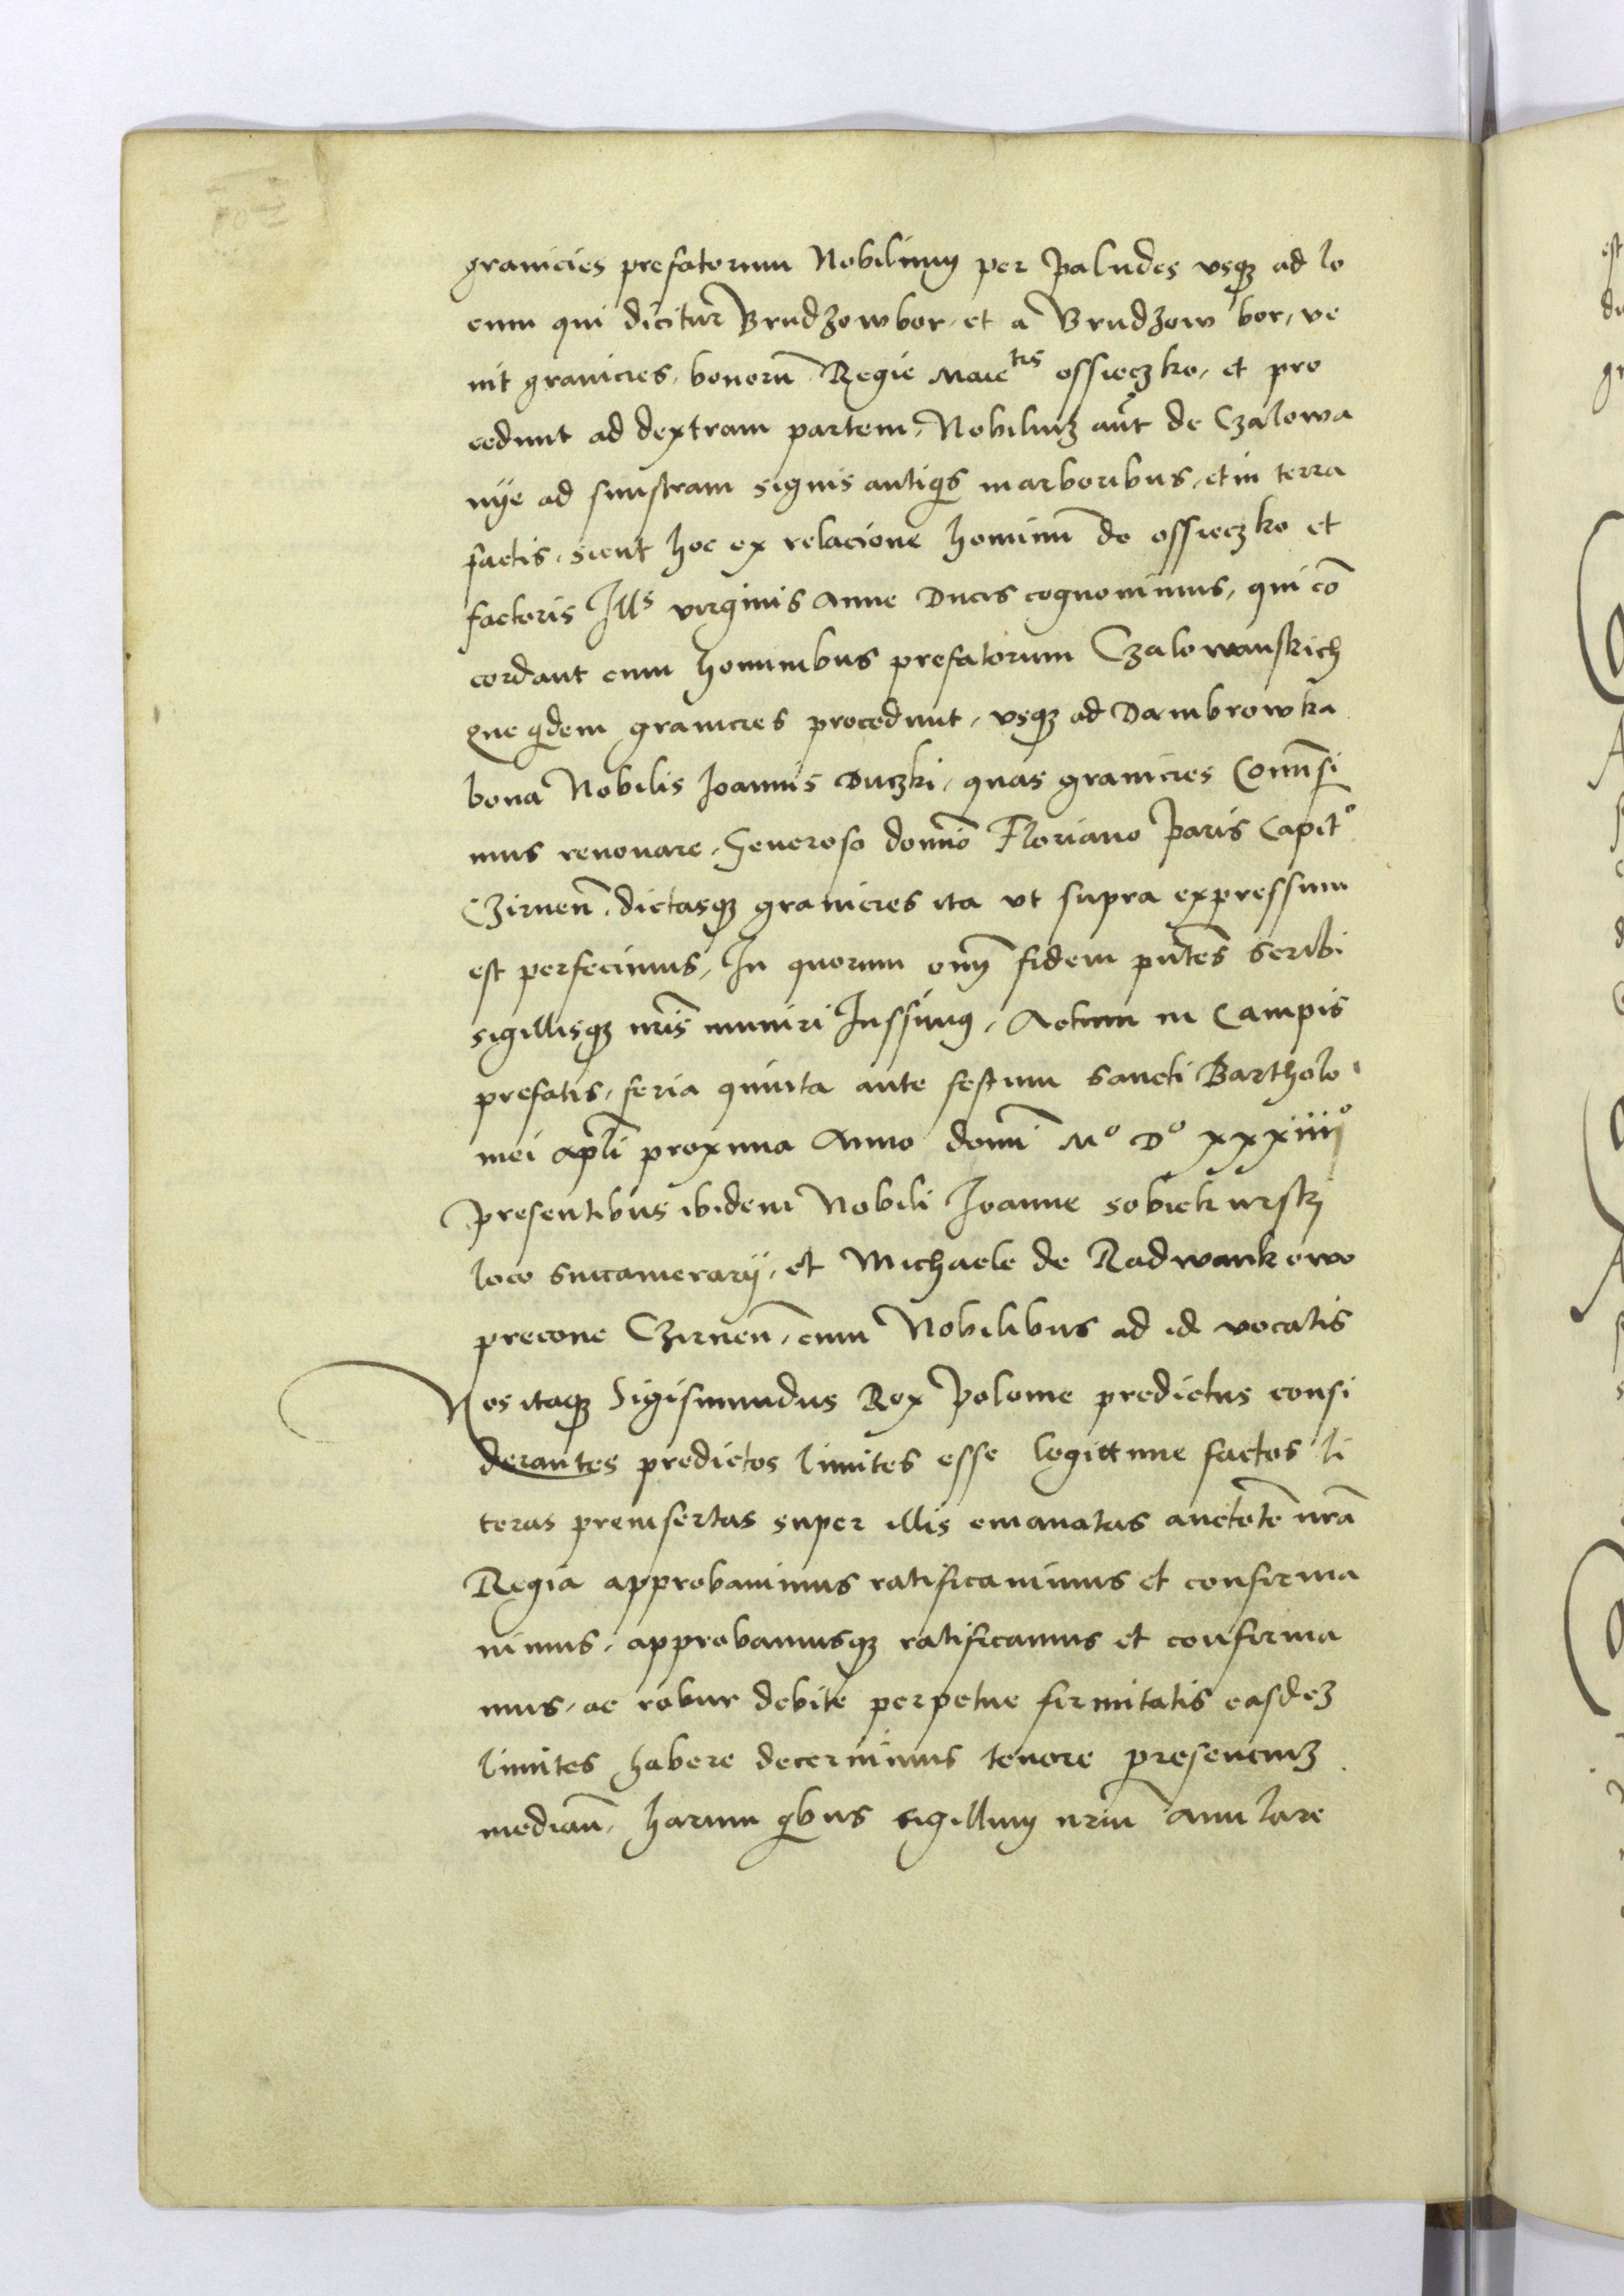 granicies prefatorum Nobilium per paludes vsqꝫ ad lo
cum qui dicitur Brudzowbor, et a Brudzow bor, ve
nit granicies, bonorū Regie Maietis ossieczko, et pro
cedunt ad dextram partem, Nobiliuꝫ aūt de Czalowa
nye ad sinistram signis antiqis in arboribus, et in terra
factis, sicut hoc ex relacione hominū de ossieczko et
factoris Ills virginis Anne Ducis cognovimus, qui cō
cordant cum hominibus prefatorum Czalowanskich
que qdem granicies procedunt, vsqꝫ ad Dambrowka
bona Nobilis Joannis Duczki, quas granicies Comīsi
mus renovare, Generoso domīo Floriano Paris Capito
Czirnen̄, dictasqꝫ granicies ita vt supra expressum
est perfecimus, In quorum om̄ fidem pn̄tes scribi
sigillisqꝫ nr̄is muniri Jussimus, Actum in Campis
prefatis, feria quinta ante festum Sancti Bartholo
mei apl̄i proxima Anno domī Mo Do xxxiiiio
Presentibus ibidem Nobili Joanne sobiekurskj
loco succamerarij, et Michaele de Radwankowo
precone Czirnen̄, cum Nobilibus ad id vocatis
Nos itaqꝫ Sigismundus Rex Polonie predictus consi
derantes predictos limites esse legittime factos li
teras preinsertas super illis emanatas auctotē nr̄ā
Regia approbavimus ratificavimus et confirma
vimus, approbamusqꝫ ratificamus et confirma
mus, ac robur debite perpetue firmitatis easdeꝫ
limites habere decernimus tenore presenciuꝫ
median̄, harum qbus sigillum nr̄m anulare